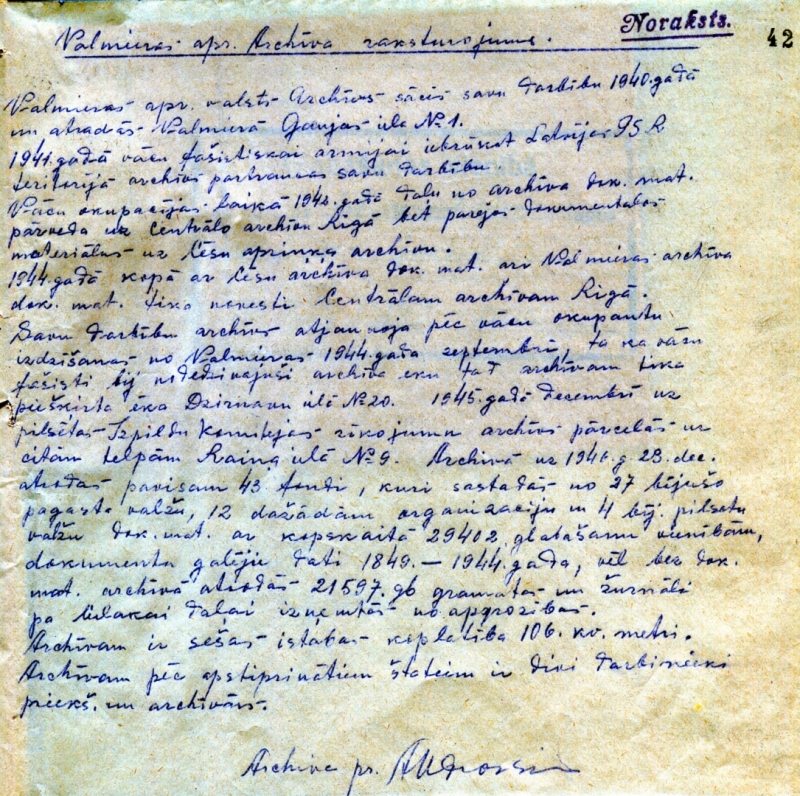 Noraksts.
42
Valmieras apr. Archīva raksturojums.
Valmieras apr. valsts Archīvs sācis savu darbību 1940.gadā
un atradās Valmierā Gaujas ielā № 1.
1941.gadā vācu fašistiskai armijai iebrūkot Latvijas PSR
teritorijā archīvs pārtrauca savu darbību.
Vācu okupācijas laikā 1942.gadā daļu no archīva dok. mat.
pārveda uz Centrālo archīvu Rīgā bet parējos dokumentālos
materiālus uz Cēsu apriņķa archīvu.
1944.gadā kopā ar Cēsu archīva dok. mat. ari Valmieras archīva
dok. mat. tika novesti Centrālam archīvam Rīgā.
Savu darbību archīvs atjaunoja pēc vācu okupantu
izdzīšanas no Valmieras 1944.gada septembrī, tā kā vācu
fašisti bij nodedzinājuši archīva ēku tad archīvam tika
piešķirta ēka Dzirnavu ielā №20. 1945.gadā decembrī uz
pilsētas Izpildu Komitejas rīkojumu archīvs pārcelās uz
citām telpām Raiņa ielā № 9. Archīvā uz 1946.g. 23. dec.
atrodas pavisam 43 fondi, kuri sastādās no 27 bijušo
pagasta valžu, 12 dažādām organizāciju un 4 bij. pilsētu
valžu dok. mat. ar kopskaitā 29402 glabāšanu vienībām,
dokumentu galējie dati 1849. — 1944.gada, vēl bez dok.
mat. archīvā atrodas 21597. gb grāmatas un žurnāli
pa lielākai daļai izņemtās no apgrozības.
Archīvam ir sešas istabas kopplatība 106. kv. metri.
Archīvam pēc apstiprinātiem štatiem ir divi darbinieki
priekš. un archīvārs.
Archīva pr.